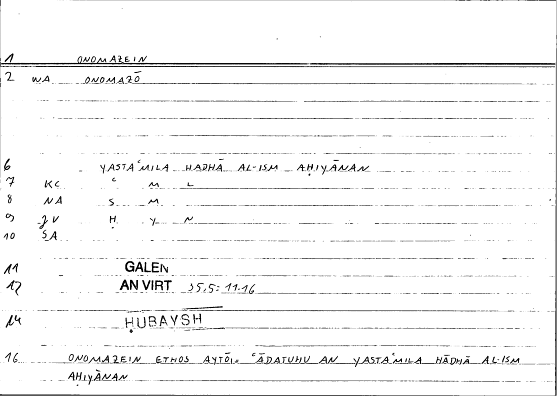 1 ONOMAZEIN
2 WA ONOMAZŌ
6 YASTAʿMILA HADHĀ AL-ISM AḤIYĀNAN
7 KC ʿ M L
8 NA S M
9 JV Ḥ Y N
10 SA
11 GALEN
12 AN VIRT 35.5: 11.16
14 ḤUBAYSH
16 ONOMAZEIN ETHOS AYTŌI. ʿĀDATUHU AN YASTAʿMILA HĀDHĀ AL-ISM
AḤIYĀNAN